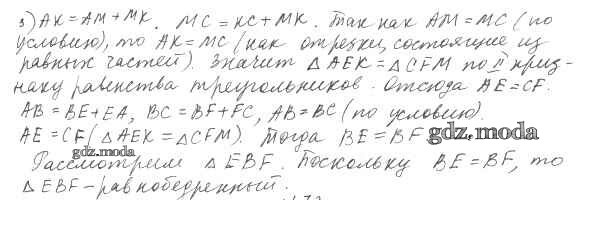 3) AK = AM + MK. MC = KC + MK. Так как AM = MC (по
условию), то AK = MC (как отрезки, состоящие из
равных частей). Значит △AEK = △CFM по II приз-
наку равенства треугольников. Отсюда AE = CF.
AB = BE + EA, BC = BF + FC, AB = BC (по условию).
AE = CF (△AEK = △CFM). Тогда BE = BF gdz.moda
gdz.moda
Рассмотрим △EBF. Поскольку BE = BF, то
△EBF – равнобедренный.